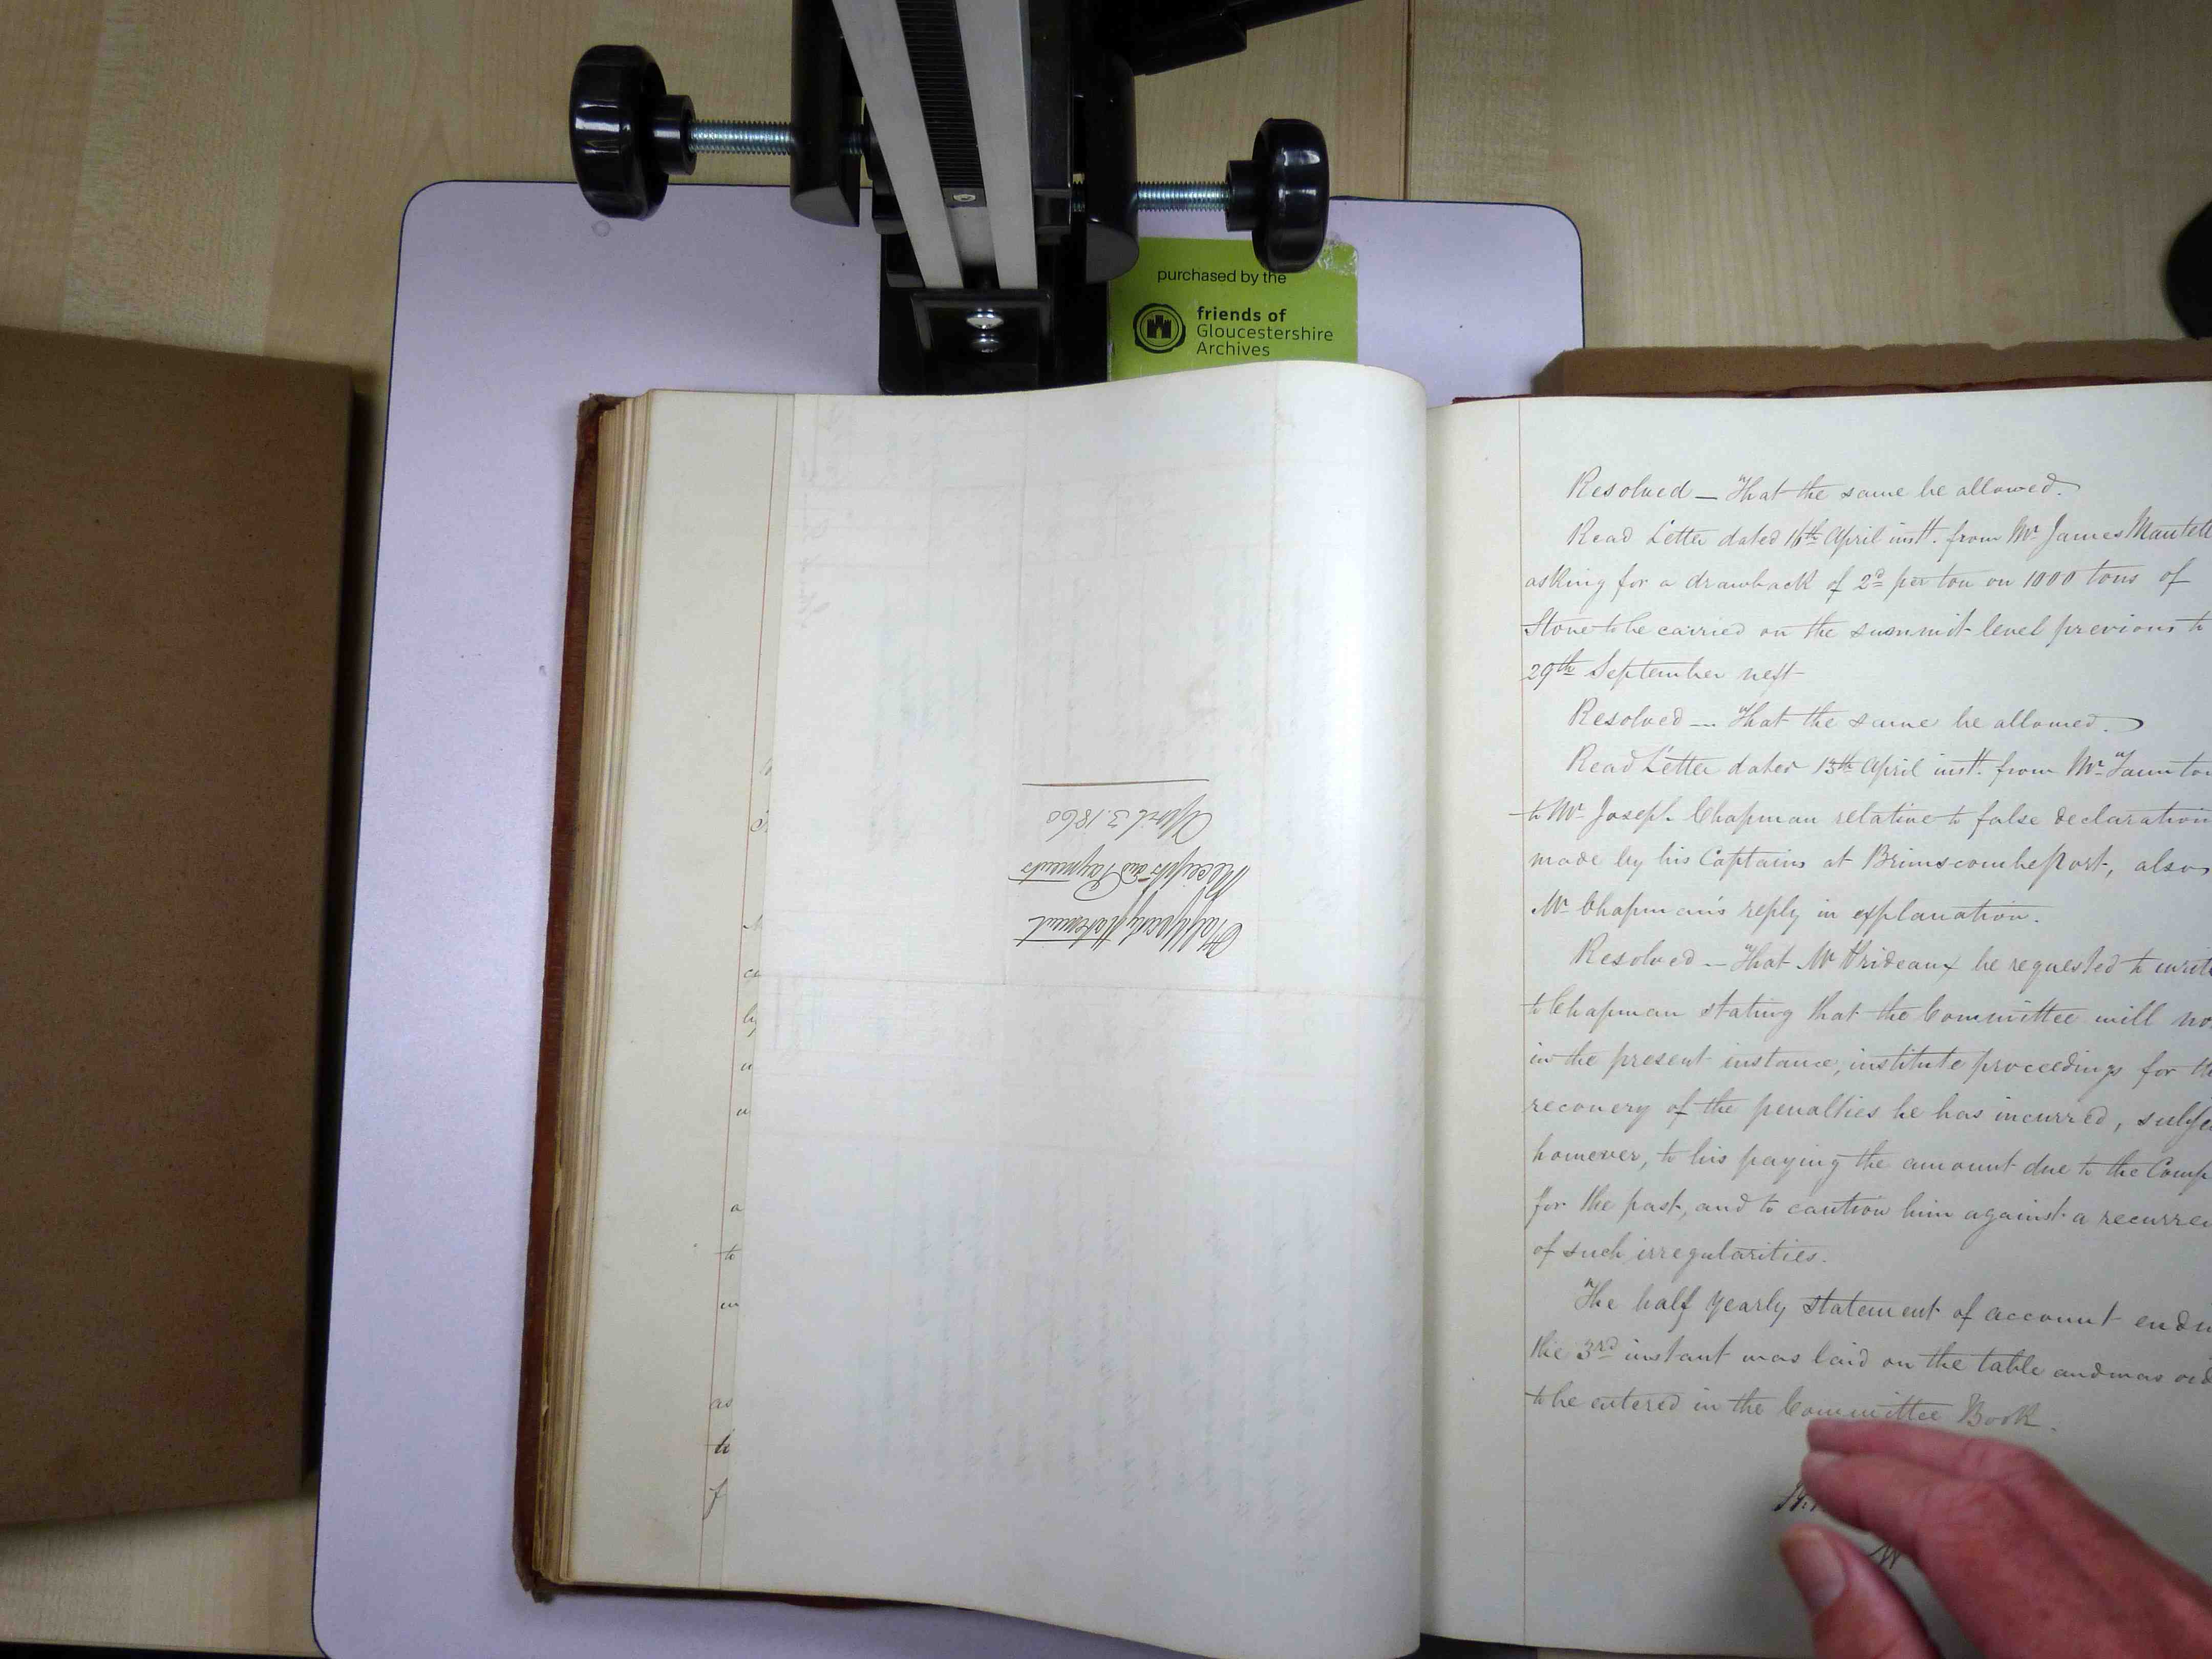 purchased by the
friends of
Gloucestershire
Archives
Half Yearly Statement
Receipts and Payments
April 3. 1860
Resolved — That the same be allowed.
Read Letter dated 16th April inst. from Mr James Mantell
asking for a drawback of 2d per ton on 1000 tons of
Stone to be carried on the summit level previous to
29th September next
Resolved — That the same be allowed.
Read Letter dated 13th April inst. from Mr Taunton
to Mr Joseph Chapman relative to false declaration
made by his Captains at Brimscombe Port, also
Mr Chapman's reply in explanation.
Resolved — That Mr Prideaux be requested to write
to Chapman stating that the Committee will no
in the present instance, institute proceedings for th
recovery of the penalties he has incurred, subje
however, to his paying the amount due to the Comp
for the past, and to caution him against a recurre
of such irregularities.
The half yearly statement of account endi
the 3rd instant was laid on the table and was ord
to be entered in the Committee Book.